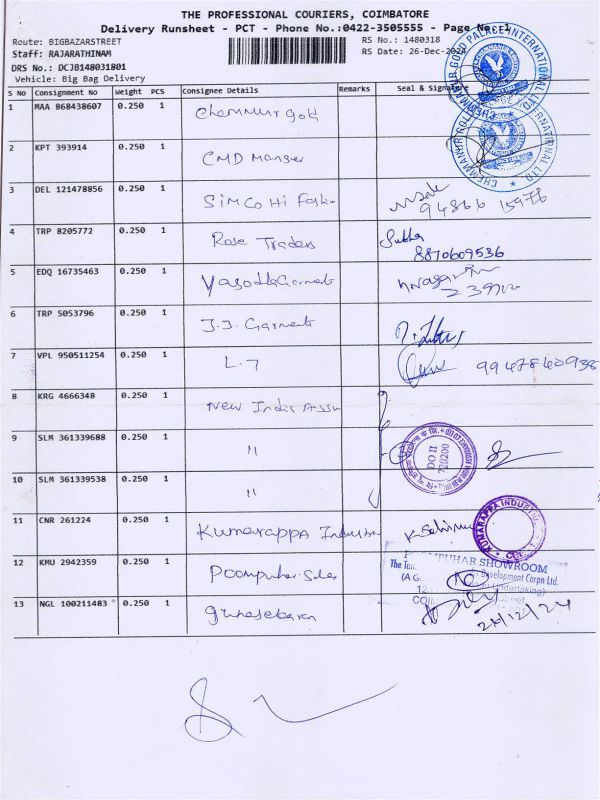 THE PROFESSIONAL COURIERS, COIMBATORE
Delivery Runsheet - PCT - Phone No.:0422-3505555 - Page No. 1
Route: BIGBAZARSTREET
RS No.: 1480318
Staff: RAJARATHINAM
RS Date: 26-Dec-2024
DRS No.: DCJB148031801
Vehicle: Big Bag Delivery
S No Consignment No Weight PCS Consignee Details Remarks Seal & Signature
1 MAA 868438607 0.250 1 Chemmur gold
CHEMMANUR GOLD PALACE INTERNATIONAL LTD.
2 KPT 393914 0.250 1 CMD Manager
CHEMMANUR GOLD PALACE INTERNATIONAL LTD.
3 DEL 121478856 0.250 1 SIMCO Hi Fashin
94866 15976
4 TRP 8205772 0.250 1 Rose Traders Subha
8870609536
5 EDQ 16735463 0.250 1 Yasodha Garments
6 TRP 5053796 0.250 1 J.J. Garments
7 VPL 950511254 0.250 1 L.7
8 KRG 4666348 0.250 1 New India Assu
9 SLM 361339688 0.250 1 "
DO II
720200
10 SLM 361339538 0.250 1 "
11 CNR 261224 0.250 1 Kumarappa Industri
KUMARAPPA INDUSTR
12 KMU 2942359 0.250 1 Poompuhar Sales
POOMPUHAR SHOWROOM
Development Corpn Ltd.
Undertaking)
13 NGL 100211483 0.250 1 gunasekaran